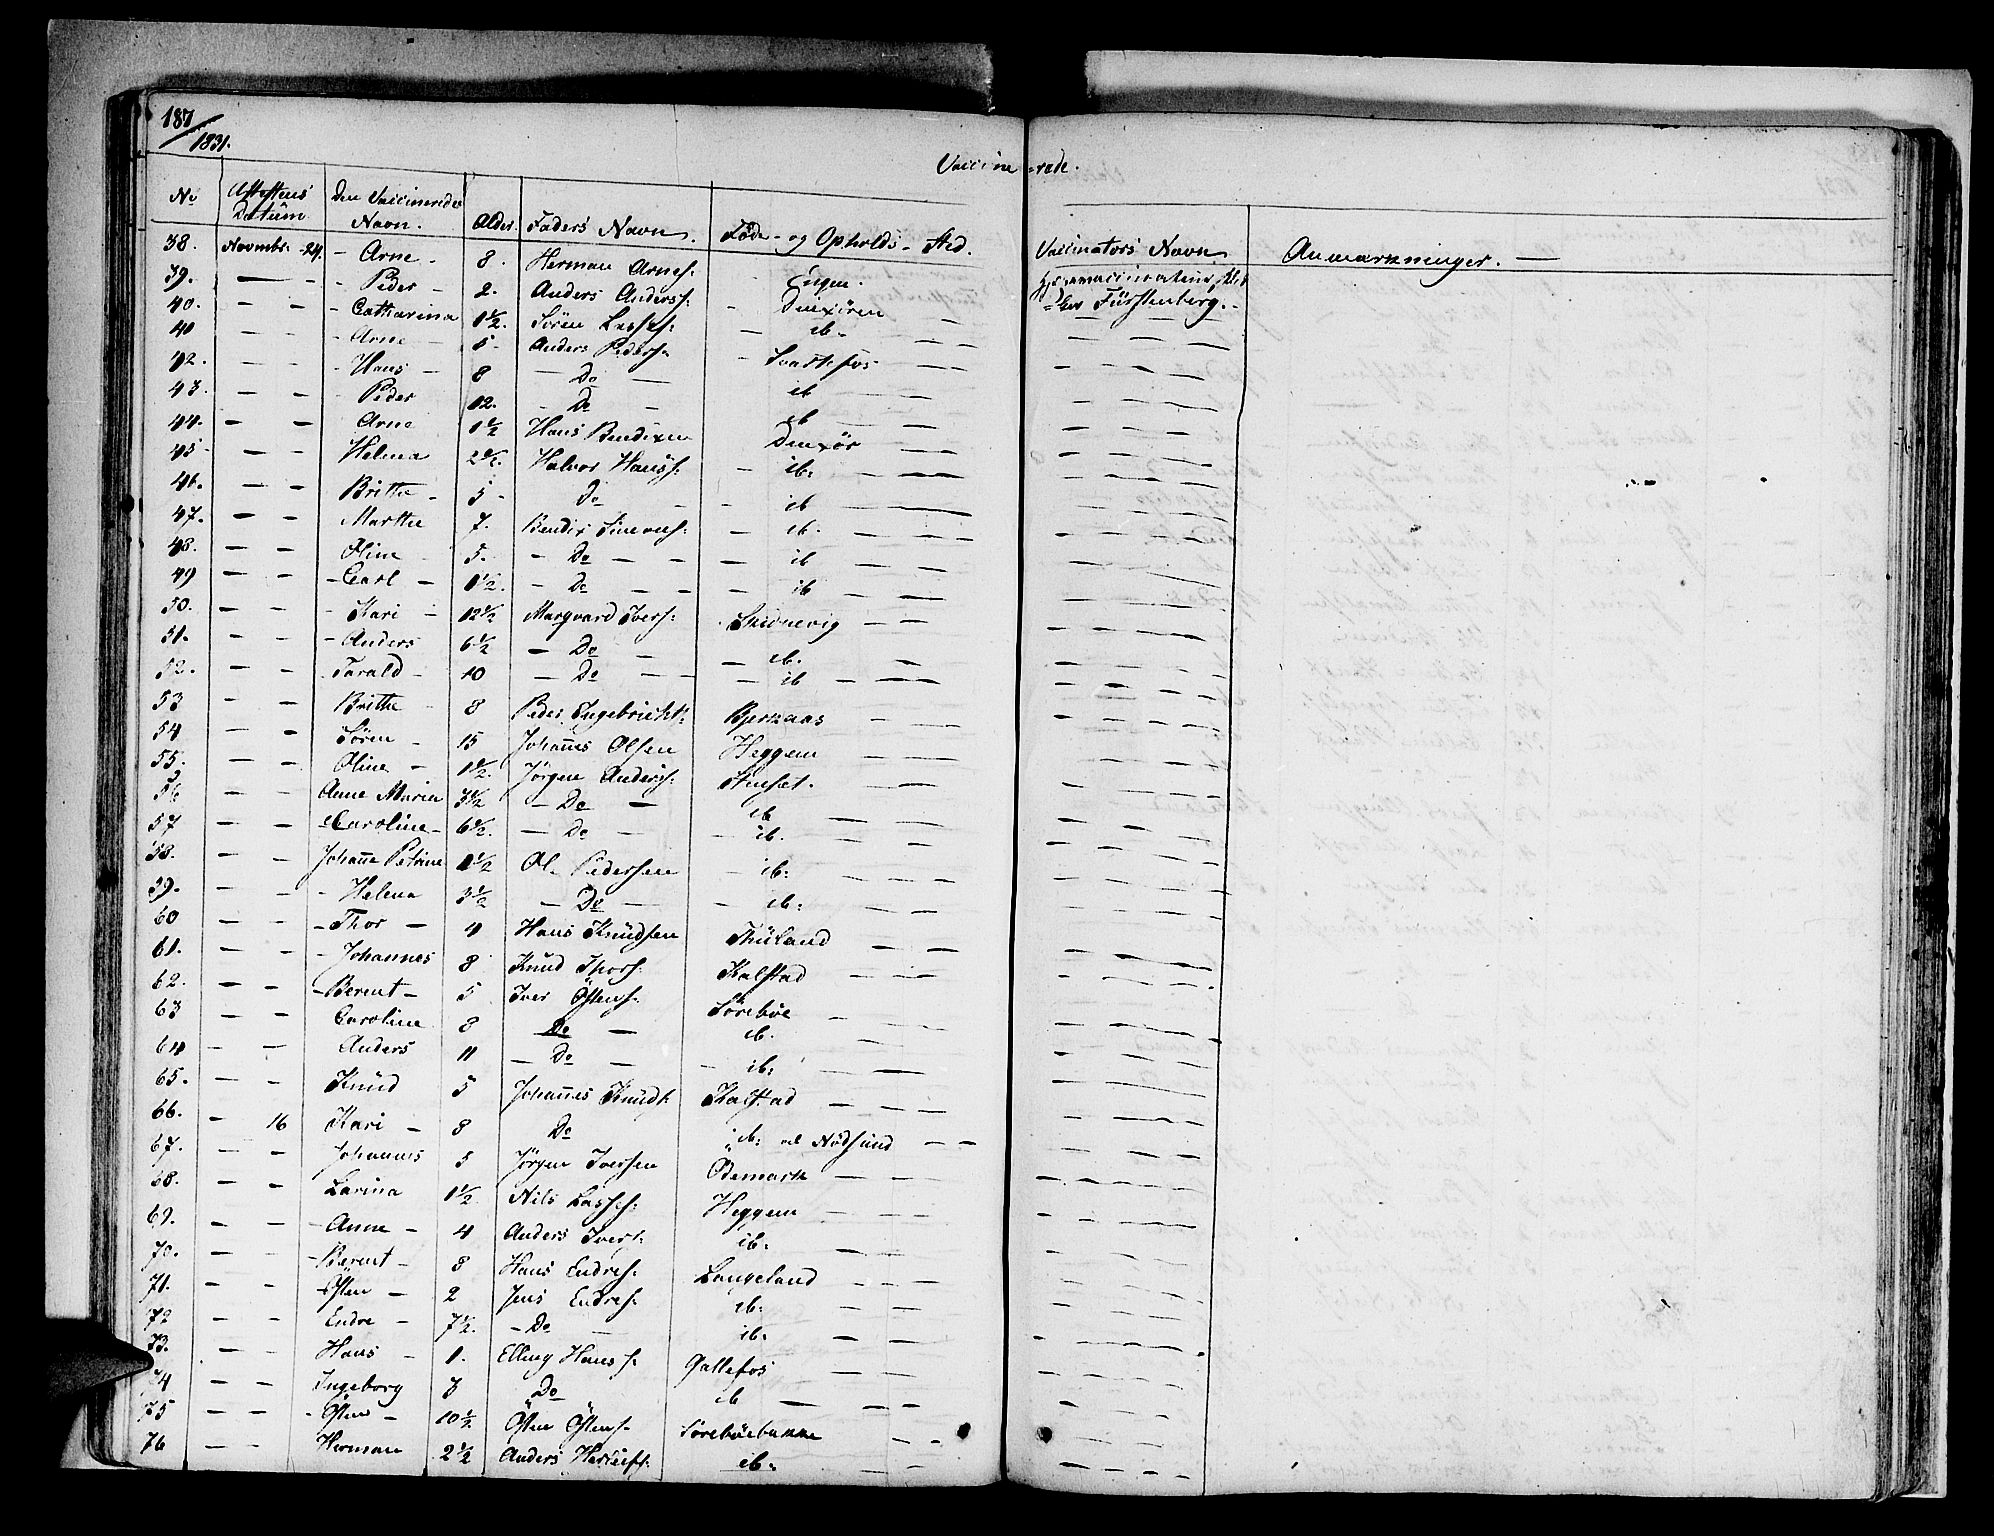 187
1831.
Vaccinerede.
No Attestens Datum Den Vaccineredes Navn. Alder. Faders Navn. Føde- og Opholds-Sted. Vaccinators Navn Anmærkninger. —
38. Novmbr. 24. - Arne - 8. Herman Arnes: Engen.
39. — - - Peder - 2. Anders Anderss: Dinxören Fürstenberg. -
40. — - - Catharina 1½. Sören Lasses: - ib. — —
40 — - - Arne - 5. Anders Peders: - Svartefos — —
42. — - - Hans - 8 — Do — ib — —
43. — - Peder 12. - Do - ib — —
44. - - Arne 1½ Hans Bendixen Dinxör — —
45. — - Helena 2½. Halvor Hanss: - ib. — —
46. — - Britha - 5 - Do - - - ib — —
47. — - Marthe 7. Bendix - ib. — —
48. — - Oline 5. - Do - - - ib — —
49 — - - Carl - 1½. - Do - - - ib — —
50. — - - Kari - 12½ Marqvard Ivers: Skidnevig — —
51. - - - Anders 6½ — Do — — ib. — —
52. - - - Tarald - 10 — Do — - - ib - — —
53 - - Brithe - 8 Peder Ingebricht: Bjerkaas - — —
54 - - Sören - 15 Johannes Olsen Heggem - — —
55. - - Oline - 1½. Jörgen Anderss: Stuesæt. - — —
56 - - Anne Maria 3½ - Do — ib — —
57 - - - Caroline - 6½. — Do — - ib. — —
58. - - Johanne Petrine 1½ Ol. Pedersen - ib: — —
59. - - - Helena 3½ — Do — - ib: — —
60 - - - Thor - 4 Hans Knudsen Thüland — — —
61. - - - Johannes 8 Knud Thors: Kalstad — — —
62. - - - Berent - 5 Iver Östens: Sörebøe — — —
63 - - Caroline 8 Do — ib. — —
64 - - Anders 11 — Do — - ib: — — —
65. - - Knud 5 Johannes Knuds: Kalstad — — —
66. - 16 Kari - 8 Do ib: ved Nödsund — —
67. - - Johannes 5 Jörgen Iversen Ödemark — — —
68. - - Larina 1½ Nils Lasses: Heggem — — —
69. - - - Anne - 4 Anders Ivers: ib: — —
70. - - - Berent - 8 Hans Endres: Langeland — — —
71. - - - Østen - 2 Jens Endres: ib: — —
72 - - Endre - 7½. - Do - ib: — —
73. - - Hans - 1. Elling Hanss: Gallefos — —
74 - - Ingeborg 3 Do ib — — —
75 - - - Østen - 10½ Östen Östens: Sörebøebakke — -
76 - - Herman 2½ Anders ib: — —